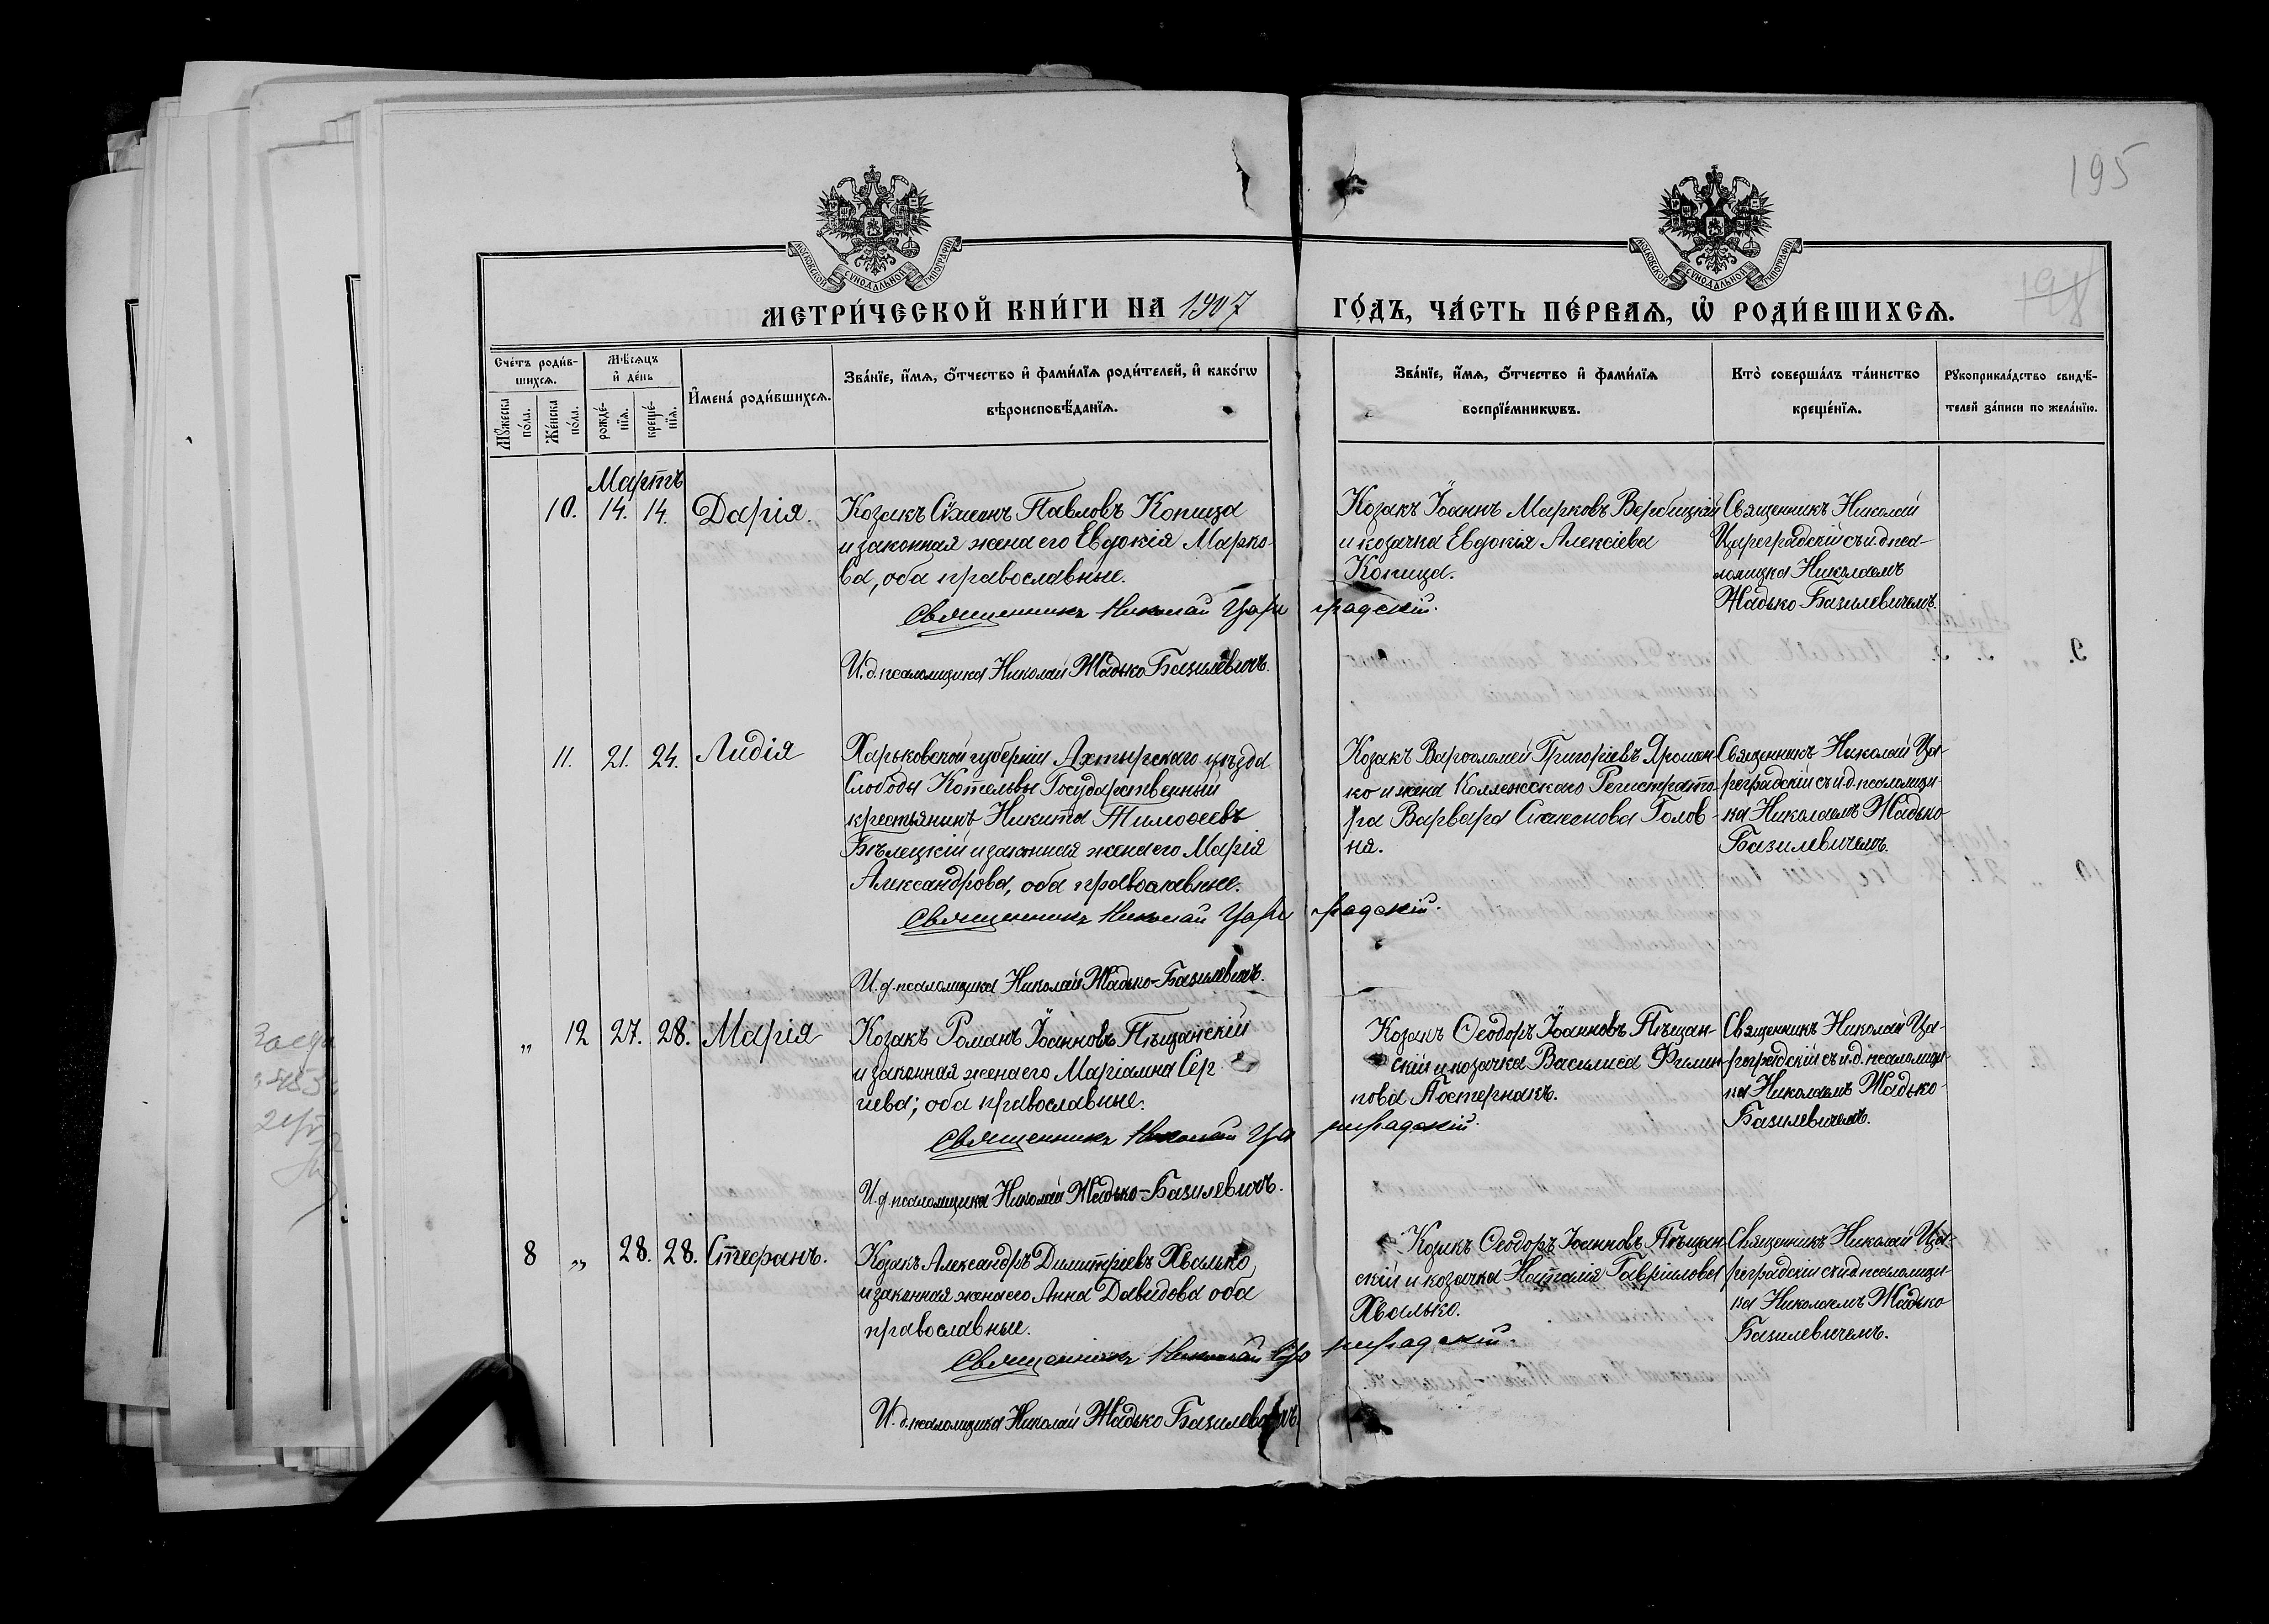 195
МОСКОВСКОЙ СѴНОДАЛЬНОЙ ТИПОГРАФІИ
МОСКОВСКОЙ СѴНОДАЛЬНОЙ ТИПОГРАФІИ
198
МЕТРИ́ЧЕСКОЙ КНИ́ГИ НА 1907 ГО́ДЪ, ЧА́СТЬ ПЕ́РВАѦ, Ѽ РОДИ́ВШИХСѦ.
Сче́тъ роди́в-
шихсѧ.
Мꙋ́жеска
по́ла.
Же́нска
по́ла.
Мѣ́сѧцъ
и҆ де́нь
рожде́-
нїѧ.
креще́-
нїѧ.
И҆мена̀ роди́вшихсѧ.
Зва́нїе, и҆́мѧ, ѻ҆́тчество и҆ фами́лїѧ роди́телей, и҆ како́гѡ
вѣроисповѣ́данїѧ.
Зва́нїе, и҆́мѧ, ѻ҆́тчество и҆ фами́лїѧ
воспрїе́мникѡвъ.
Кто̀ соверша́лъ та́инство
креще́нїѧ.
Рꙋкоприкла́дство свидѣ́-
телей за́писи по жела́нїю.
Мартъ
10. 14. 14. Дарія.
Козакъ Сѵмеонъ Павловъ Копица
и законная жена его Евдокія Марко-
ва, оба православные.
Священникъ Николай Цареградскій.
И. д. псаломщика Николай Жадько Базилевичъ.
Козакъ Іоаннъ Марковъ Вербицкій
и козачка Евдокія Алексіева
Копица.
Священникъ Николай
Цареградскій съ и. д. пса-
ломщика Николаемъ
Жадько Базилевичемъ.
11. 21. 24. Лидія
Харьковской губерніи Ахтырскаго уѣзда
Слободы Котельвы Государственный
крестьянинъ Никита Тимоѳеевъ
Бѣлецкій и законная жена его Марія
Александрова, оба православные.
Священникъ Николай Цареградскій.
И. д. псаломщика Николай Жадько-Базилевичъ.
Козакъ Варѳоломей Григоріевъ Яромен-
ко и жена Коллежскаго Регистрато-
ра Варвара Симеонова Голов-
ня.
Священникъ Николай Ца-
реградскій съ и. д. псаломщи-
ка Николаемъ Жадько-
Базилевичемъ.
„ 12 27. 28. Марія
Козакъ Романъ Іоанновъ Пѣщанскій
и законная жена его Маріамна Сер-
гіева; оба православные.
Священникъ Николай Цариградскій.
И. д. псаломщика Николай Жадько-Базилевичъ.
Козакъ Ѳеодоръ Іоанновъ Пѣщан-
скій и козачка Василиса Филип-
пова Постернакъ.
Священникъ Николай Ца-
реградскій съ и. д. псаломщи-
ка Николаемъ Жадько-
Базилевичемъ.
8 „ 28. 28. Стефанъ.
Козакъ Александръ Димитріевъ Хвалько
и законная жена его Анна Давидова оба
православные.
Священникъ Николай Цариградскій.
И. д. псаломщика Николай Жадько Базилевичъ.
Козакъ Ѳеодоръ Іоанновъ Пѣщан-
скій и козачка Наталія Гавріилова
Хвалько.
Священникъ Николай Ца-
реградскій съ и. д. псаломщи-
ка Николаемъ Жадько
Базилевичемъ.